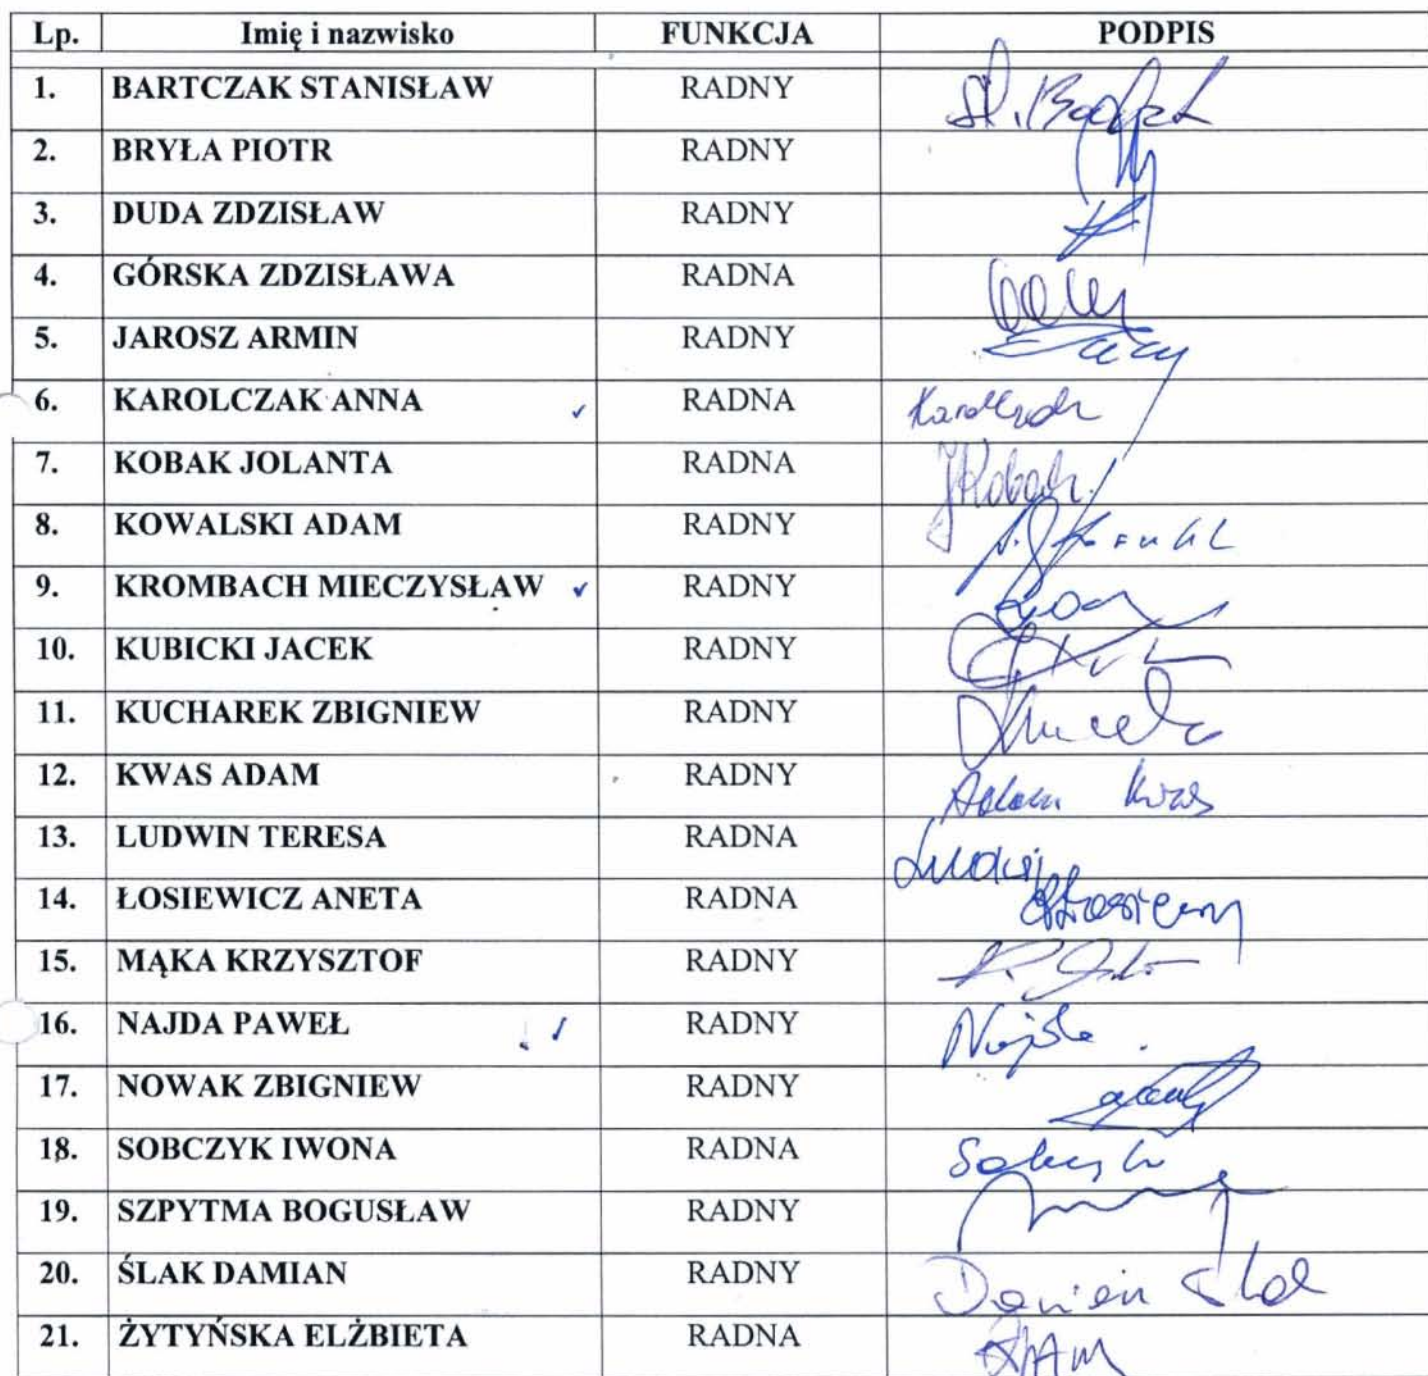 Lp. Imię i nazwisko FUNKCJA PODPIS
1. BARTCZAK STANISŁAW RADNY
2. BRYŁA PIOTR RADNY
3. DUDA ZDZISŁAW RADNY
4. GÓRSKA ZDZISŁAWA RADNA
5. JAROSZ ARMIN RADNY
6. KAROLCZAK ANNA RADNA Karolczak
7. KOBAK JOLANTA RADNA JKobak
8. KOWALSKI ADAM RADNY
9. KROMBACH MIECZYSŁAW RADNY
10. KUBICKI JACEK RADNY
11. KUCHAREK ZBIGNIEW RADNY
12. KWAS ADAM RADNY Adam Kwas
13. LUDWIN TERESA RADNA
14. ŁOSIEWICZ ANETA RADNA
15. MĄKA KRZYSZTOF RADNY
16. NAJDA PAWEŁ RADNY Najda
17. NOWAK ZBIGNIEW RADNY
18. SOBCZYK IWONA RADNA
19. SZPYTMA BOGUSŁAW RADNY
20. ŚLAK DAMIAN RADNY Damian Ślak
21. ŻYTYŃSKA ELŻBIETA RADNA